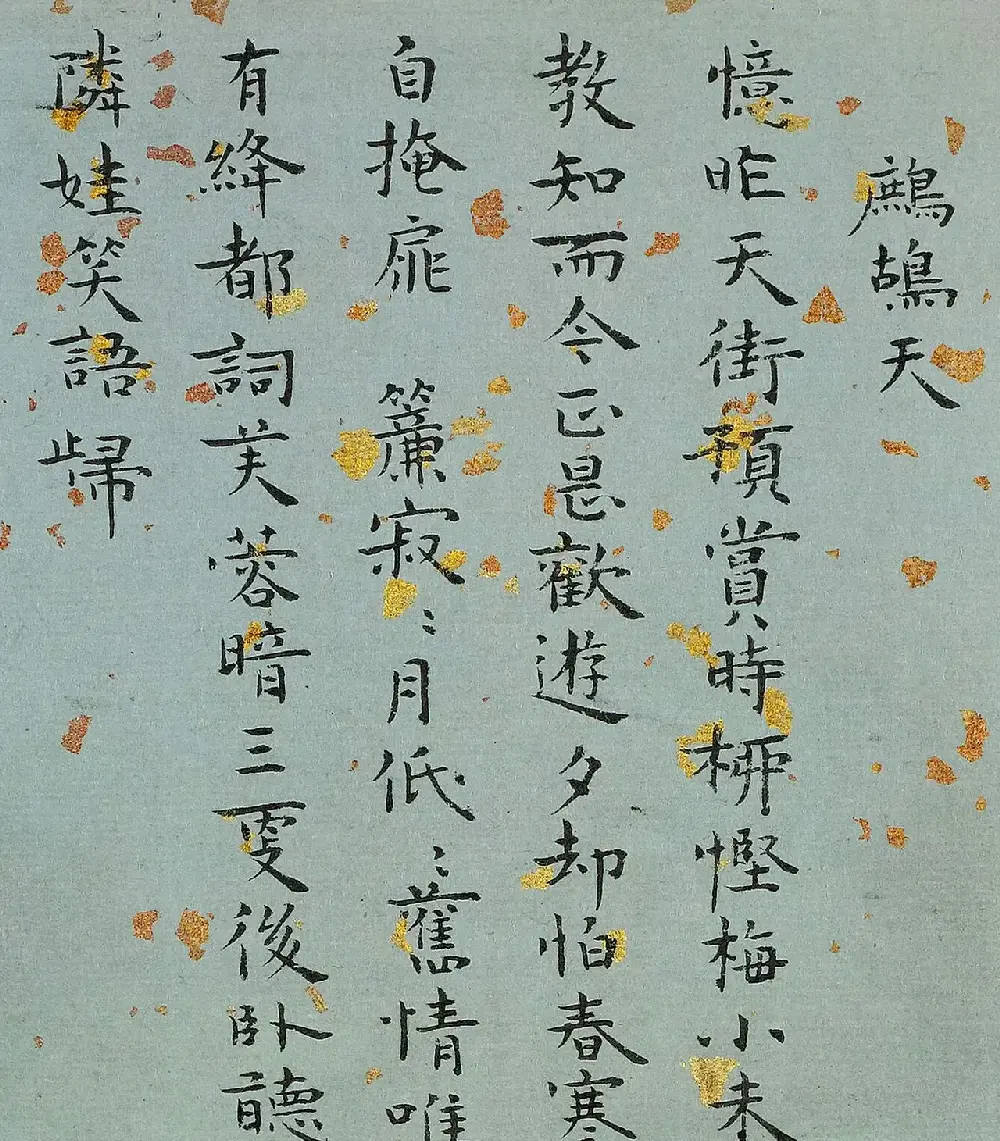 鷓鴣天
憶昨天街預賞時柳慳梅小未
教知而今正是歡遊夕却怕春寒
自掩扉 簾寂〻月低〻舊情唯
有絳都詞芙蓉暗三更後卧聽
隣娃笑語歸